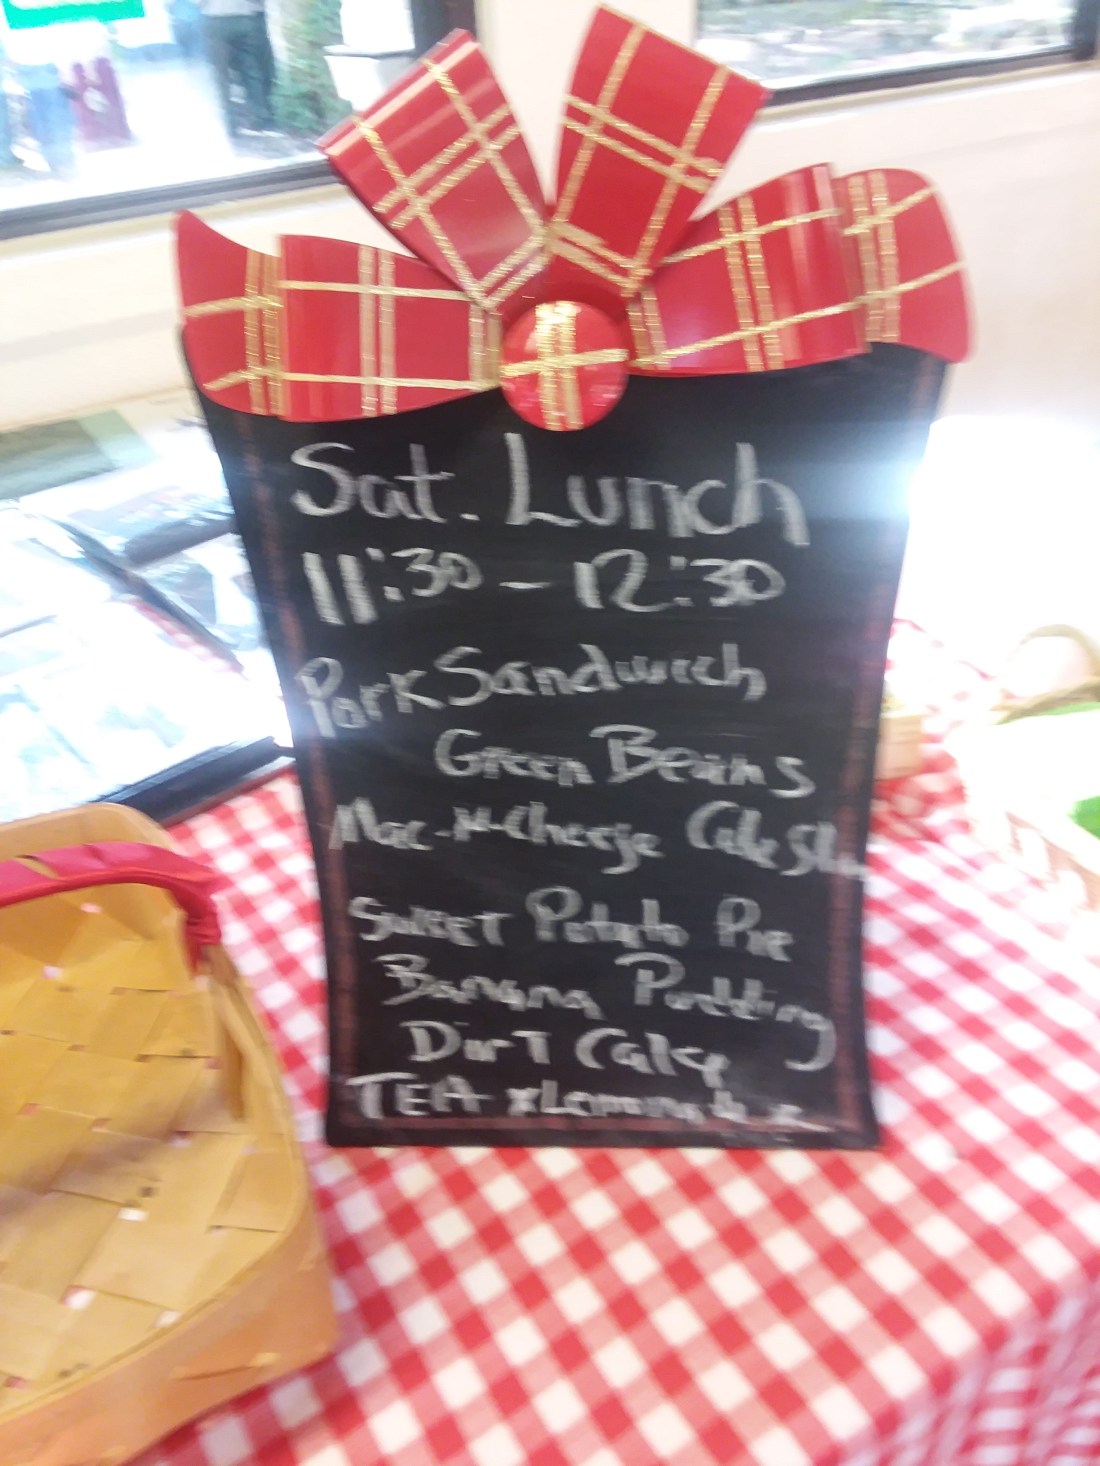 Sat. Lunch
11:30 - 12:30
Pork Sandwich
Green Beans
Mac-N-Cheese Cole Slaw
Sweet Potato Pie
Banana Pudding
Dirt Cake
TEA & Lemonade